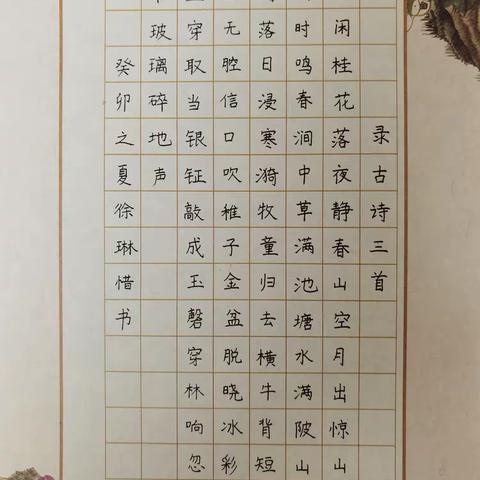 录古诗三首
闲桂花落夜静春山空月出惊山
时鸣春涧中草满池塘水满陂山
落日浸寒漪牧童归去横牛背短
无腔信口吹稚子金盆脱晓冰彩
穿取当银钲敲成玉磬穿林响忽
玻璃碎地声
癸卯之夏徐琳惜书